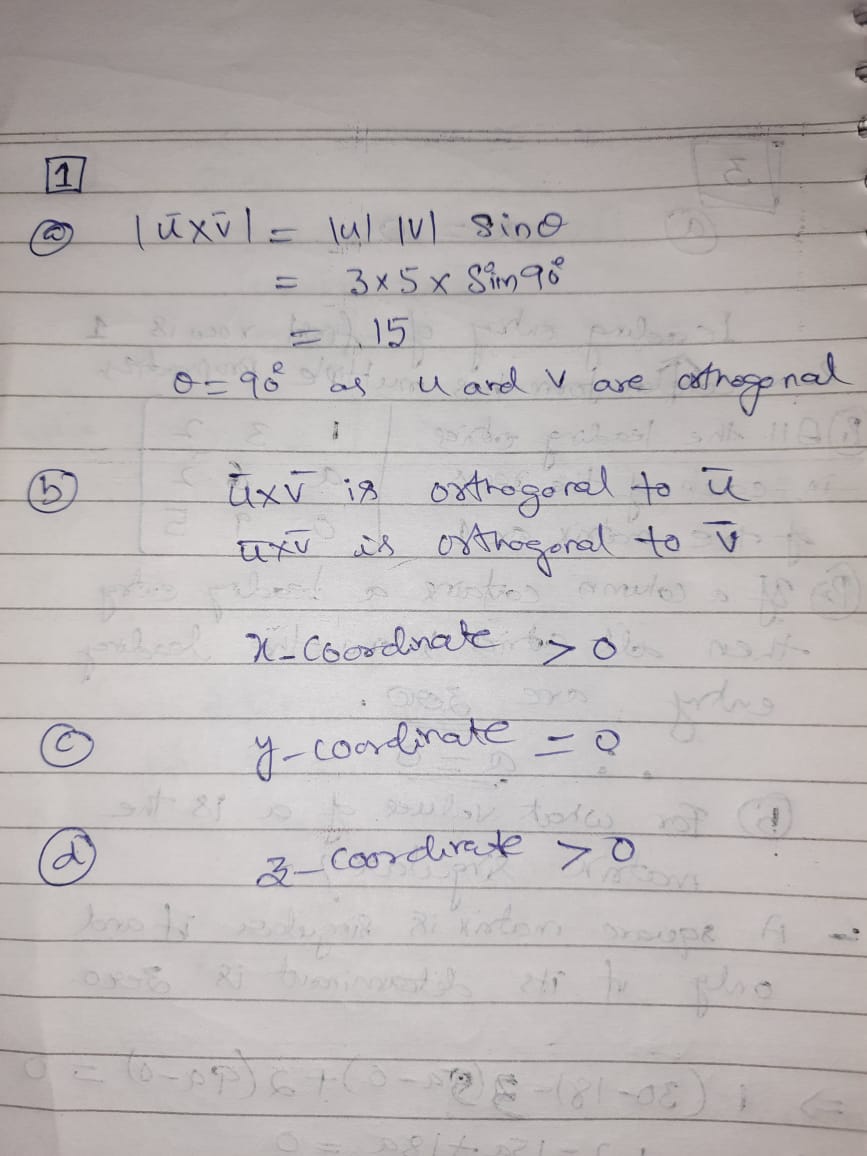 1
(a) |ū×v̄| = |u| |v| sinθ
= 3×5× Sin90°
= 15
θ=90° as u and v are orthogonal
(b) ū×v̄ is orthogonal to ū
ū×v̄ is orthogonal to v̄
x-coordinate > 0
(c) y-coordinate = 0
(d) z-coordinate > 0